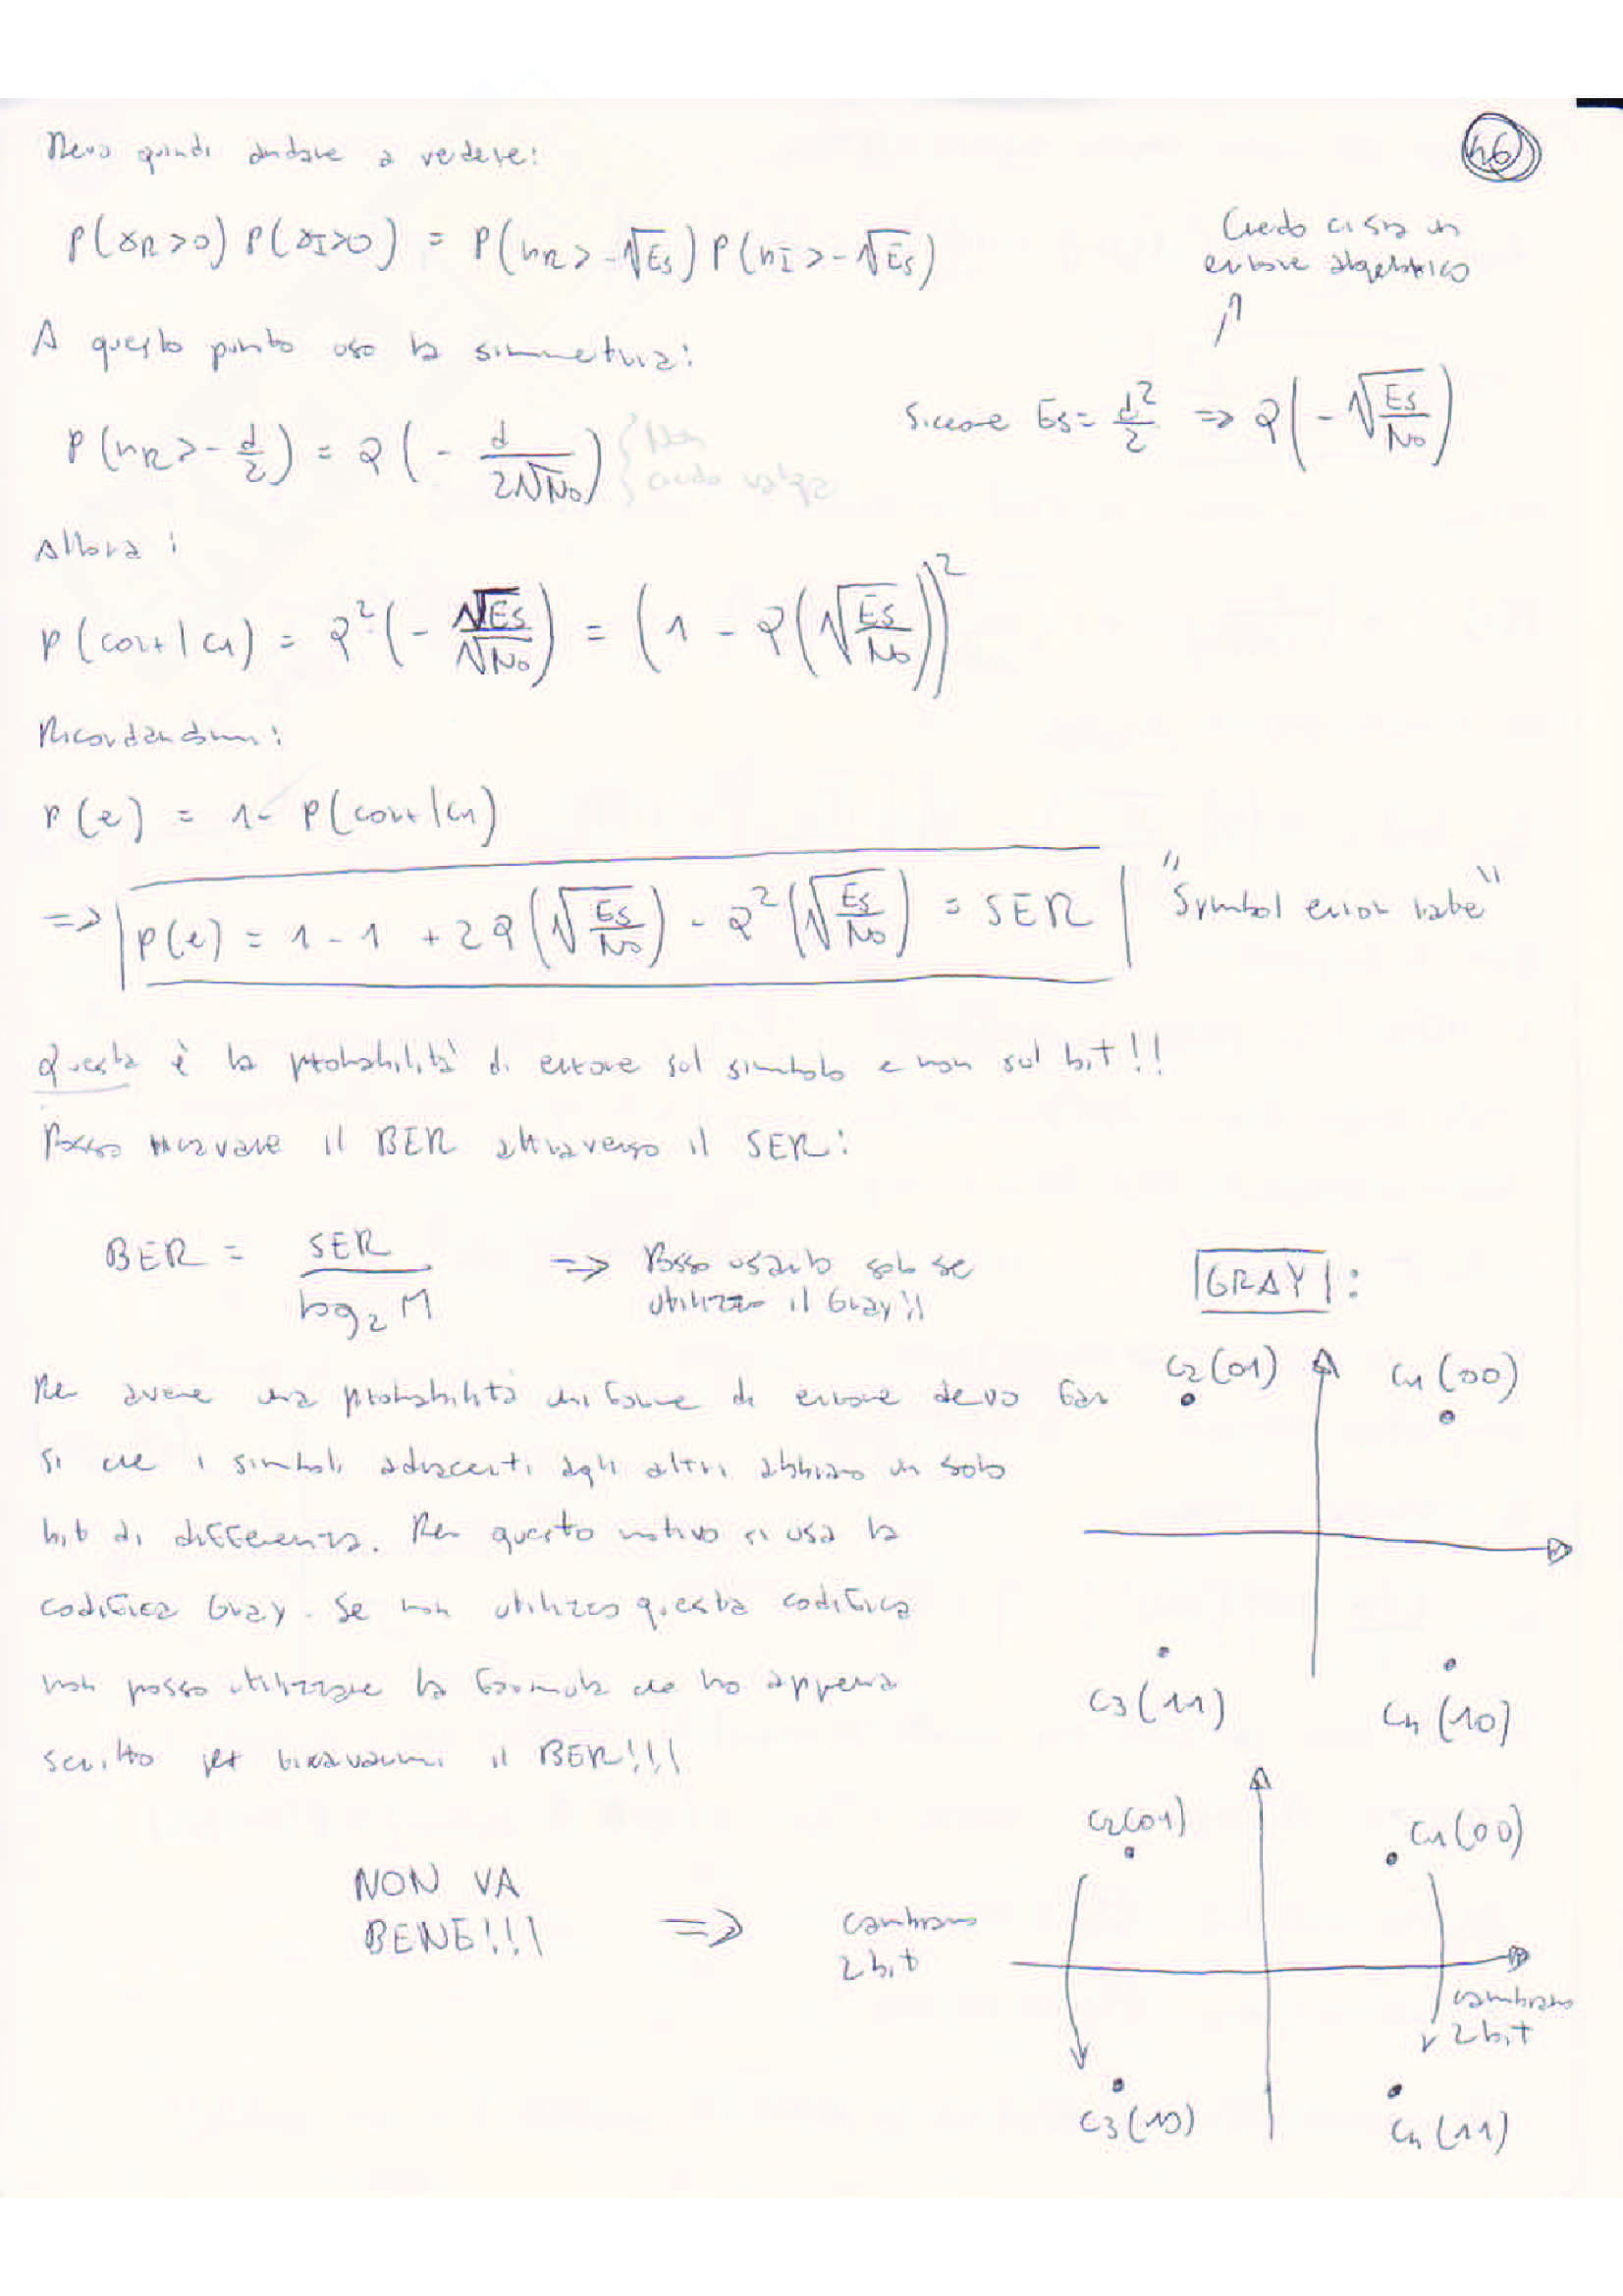 46
Devo quindi andare a vedere:
P(γR>0) P(γI>0) = P(nR>-√Es) P(nI>-√Es)
Credo ci sia un
errore algebrico
A questo punto uso la simmetria:
Siccome Es = d²/2 => Q(-√(Es/No))
P(nR>-d/2) = Q(-d/(2√No)) Non
credo valga
Allora:
P(corr|c1) = Q²(-√Es/√No) = (1 - Q(√(Es/No)))²
Ricordandomi:
P(e) = 1- P(corr|c1)
=> P(e) = 1-1 + 2Q(√(Es/No)) - Q²(√(Es/No)) = SER "Symbol error rate"
Questa è la probabilità di errore sul simbolo e non sul bit!!
Posso ricavare il BER attraverso il SER:
BER = SER/log₂M => Posso usarlo solo se
utilizzo il Gray!!
GRAY:
Per avere una probabilità uniforme di errore devo far
si che i simboli adiacenti agli altri abbiano un solo
bit di differenza. Per questo motivo si usa la
codifica Gray. Se non utilizzo questa codifica
non posso utilizzare la formula che ho appena
scritto per ricavarmi il BER!!!
c2(01)
c1(00)
c3(11)
c4(10)
NON VA
BENE!!!
=>
cambiano
2 bit
c2(01)
c1(00)
cambiano
2 bit
c3(10)
c4(11)